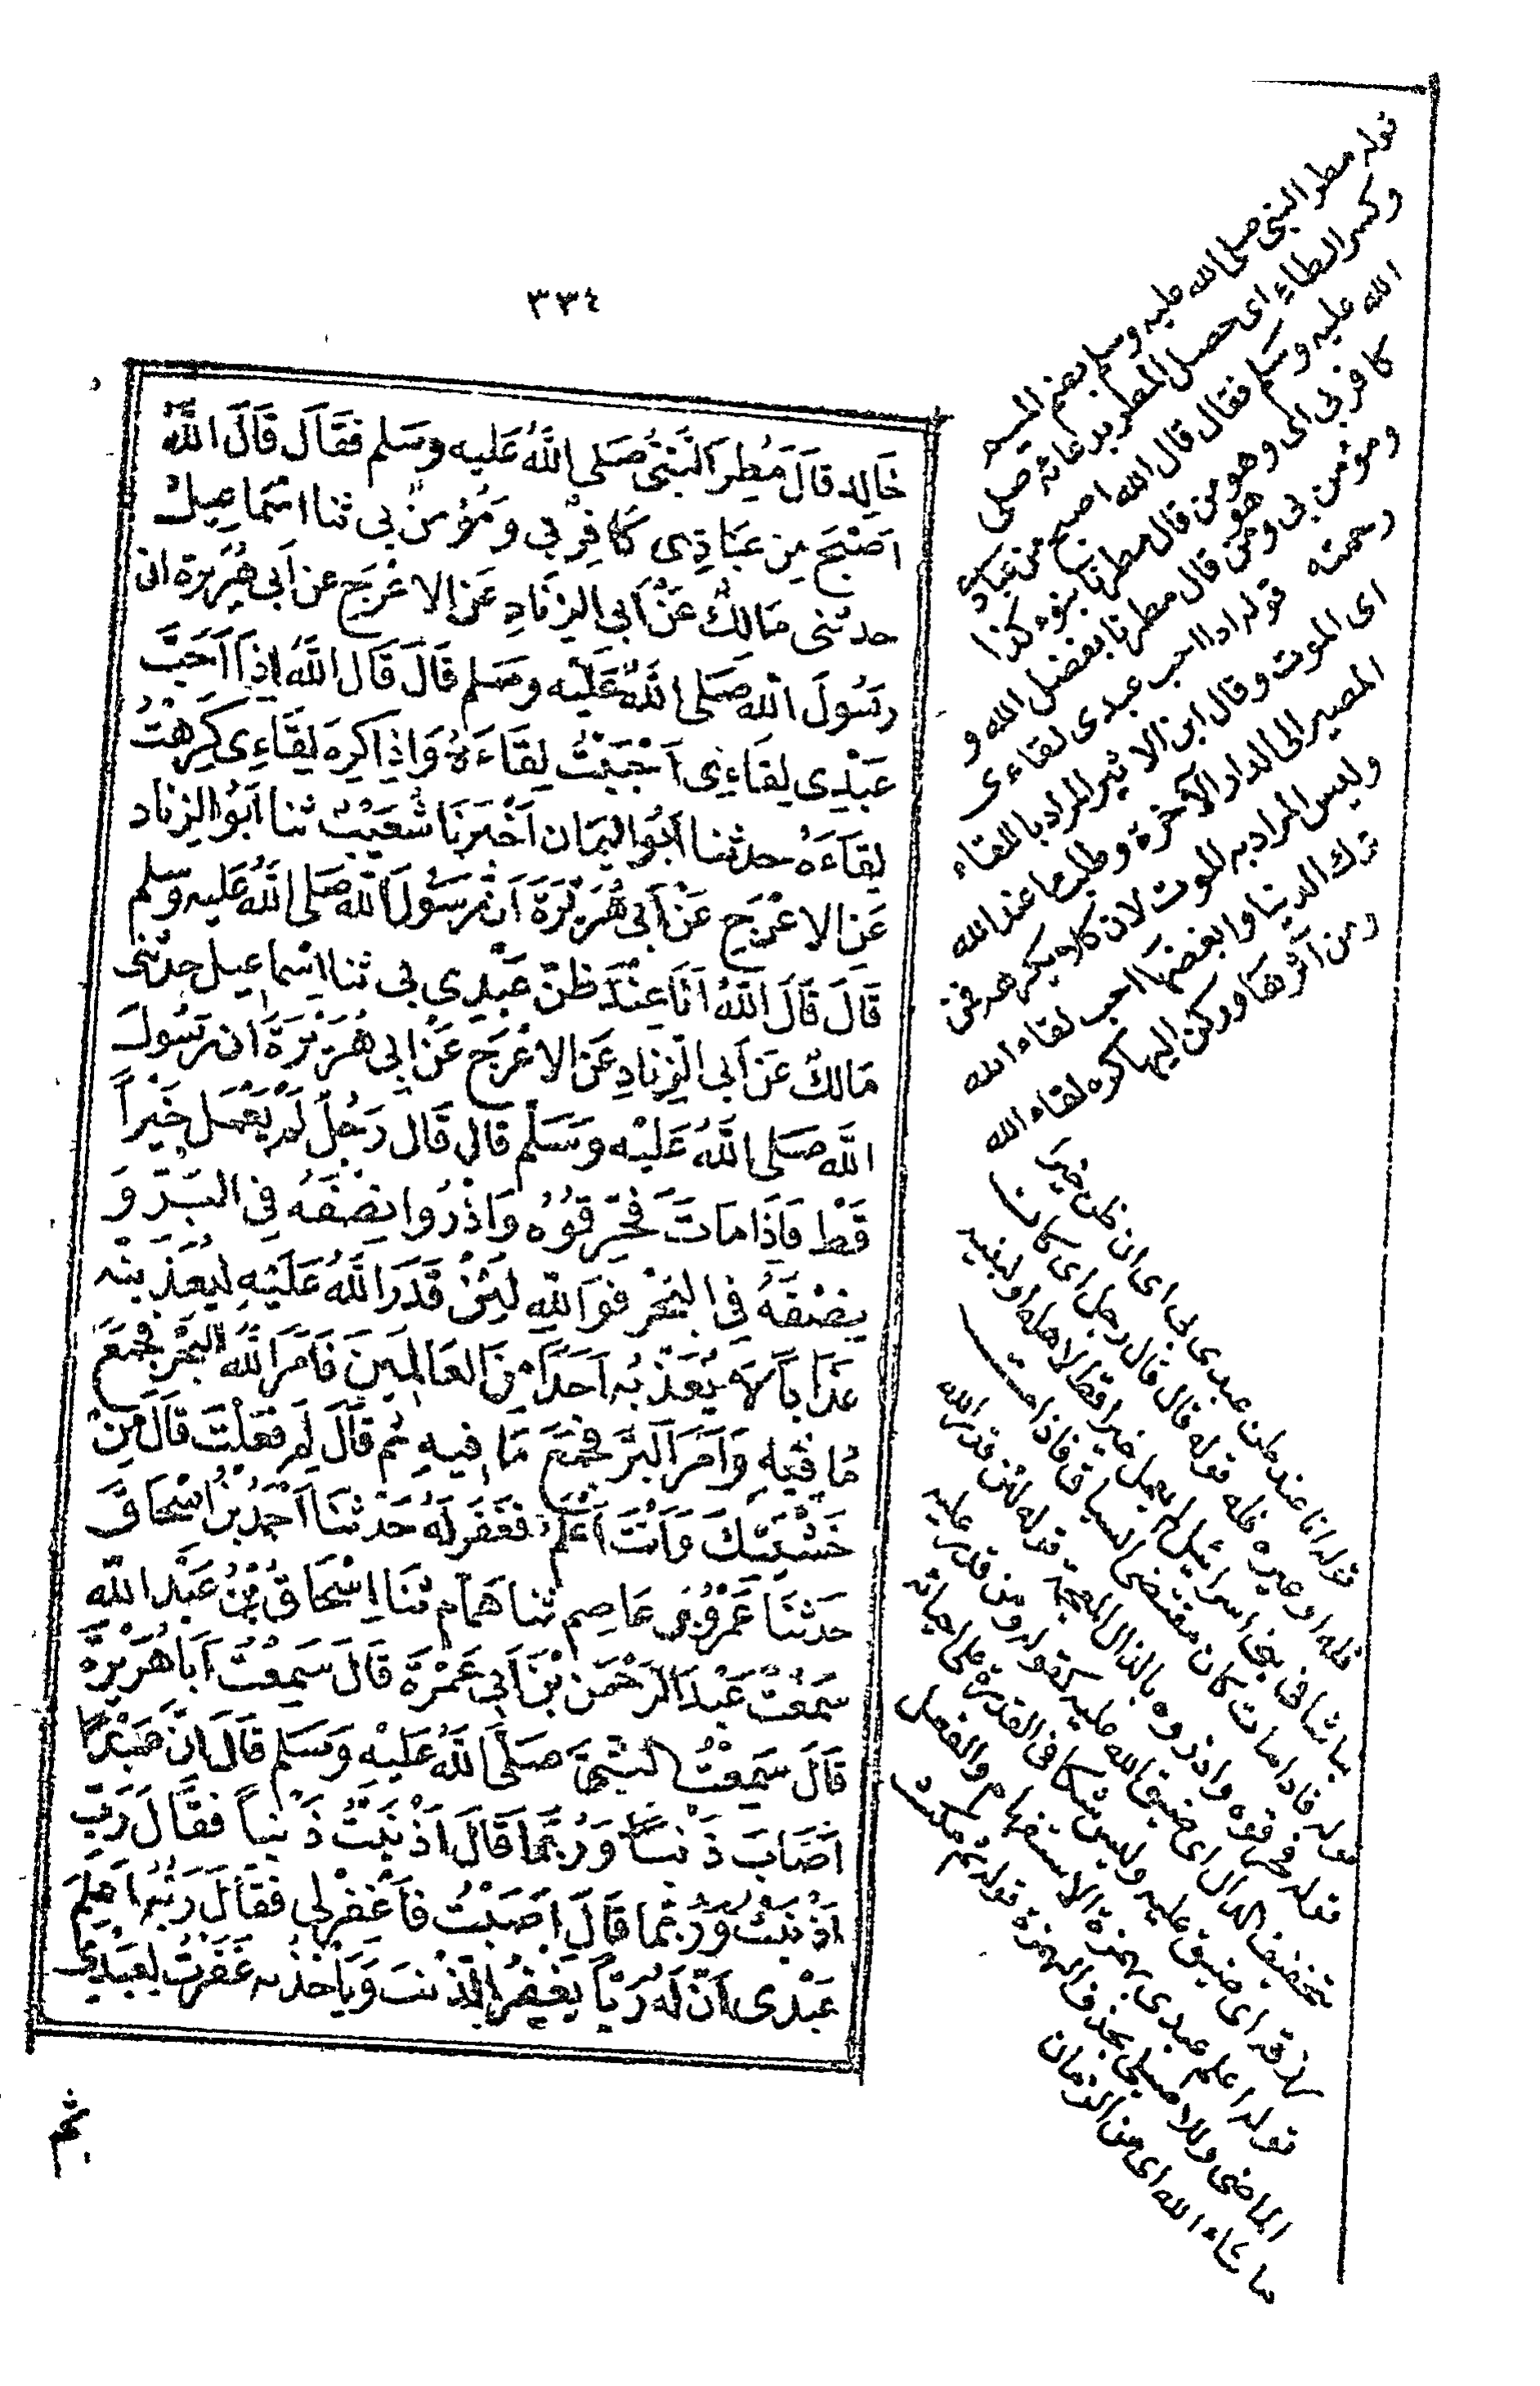 ٣٣٤
خَالِد قَالَ مُطِرَ النَّبِيُّ صَلَى اللَّهُ عَلَيه وَسَلم فَقَالَ قَالَ اللَّهُ
اَصْبَحَ مِن عِبَادِى كَافِرٌ بِي وَمُؤمِنٌ بِي ثنا اسْمَاعِيلُ
حدثنى مَالِكٌ عَنْ اَبِي الزنَادِ عَنِ الاعْرَجِ عن اَبي هُرَيرَة ان
رَسُولَ اللَّه صَلَى اللَّهُ عَلَيْه وسَلم قَالَ قَالَ اللَّهُ اِذَا اَحَبَّ
عَبْدِى لِقَاءِى اَحْبَبْتُ لِقَاءَهُ وَاِذَا كَرِهَ لِقَاءِى كَرِهْتُ
لِقَاءَهُ حدثنا اَبُو اليَمَان اَخْبَرَنَا شُعَيْبٌ ثنا اَبُو الزنَاد
عَنِ الاعْرَجِ عَنْ اَبِي هُرَيْرَةَ اَنَّ رَسُولَ اللَّه صَلَى اللَّهُ عَلَيه وَسَلم
قَالَ قَالَ اللَّهُ اَنَا عِنْدَ ظَنِّ عَبْدِي بِي ثنا اسْمَاعِيل حدثنى
مَالِكٌ عَن اَبي الزِنَادِ عَن الاعْرَجِ عَنْ اَبِي هُرَيْرَةَ اَن رَسُولَ
اللَّه صَلَى اللَّهُ عَلَيْه وَسَلَّم قَالَ قَالَ رَجُلٌ لَمْ يَعْمَل خَيْراً
قَطُّ فَاِذَا مَاتَ فَحَرِّقُوُه وَاذْرُوا نِصْفَهُ فِي البَرِّ وَ
نِصْفَهُ فِي البَحْر فَوَاللَّهِ لَئِنْ قَدَرَ اللَّهُ عَلَيْهِ ليُعَذِّبَنَّه
عَذَاباً لاَ يُعَذِّبُه اَحَدَاً مِنَ العَالَمِينَ فَاَمَرَ اللَّهُ البَحْرَ فَجَمَعَ
مَا فِيْهِ وَاَمَرَ البَرَّ فَجَمَعَ مَا فِيهِ ثُم قَالَ لِمَ فَعَلْتَ قَالَ مِنْ
خَشْيَتِكَ وَاَنْتَ اَعْلَمُ فَغَفَرَ لَهُ حَدثنَا اَحْمَدُ بنُ اسْحَاقَ
حَدثنَا عَمْرُو بْنُ عَاصِم ثنا هَمَّام ثنَا اِسْحَاقُ بْنُ عَبْد اللَّه
سَمِعْتُ عَبْدَ الرَحْمَن بْنَ اَبي عَمْرَةَ قَالَ سَمِعْتُ اَبَا هُرَيْرَةَ
قَالَ سَمِعْتُ النَّبِيَّ صَلَّى اللَّهُ عَلَيْه وَسَلم قَالَ اِنَّ عَبْدًا
اَصَابَ ذَنْبًا وَرُبَّمَا قَالَ اَذْنَبَ ذَنْباً فَقَالَ رَبِّ
اَذْنَبْتُ وَرُبَّمَا قَالَ اَصَبْتُ فَاغْفِرْ لِي فَقَالَ رَبُّهُ اَعَلِمَ
عَبْدى اَنَّ لَهُ رَبّاً يَغفِرُ الذَّنْبَ وَيَأخُذُ بِه غَفَرْتُ لِعَبْدِى
ثُم
قوله مطر النبى صلى الله عليه وسلم بضم الميم
وكسر الطاء اى حصل المطر بدعائه صلى
الله عليه وسلم فقال قال الله اصبح من عبادى
كافر بى اى وهو من قال مطرنا بنوء كذا
ومؤمن بى وهو من قال مطرنا بفضل الله و
رحمته قوله اذا احب عبدى لقاءى
اى الموت وقال ابن الاثير المراد باللقاء
المصير الى الدار الآخرة وطلب ما عند الله
وليس المراد به الموت لان كلا يكرهه فمن
ترك الدنيا وابغضها احب لقاء الله
ومن آثرها وركن اليها كره لقاء الله
قوله انا عند ظن عبدى بى اى ان ظن خيرا
فله او غيره فله قوله قال قال رجل اى كان
نباشا فى بنى اسرائيل لم يعمل خيرا قط لاهله او لبنيه
قوله فاذا مات كان مقتضى السياق فاذا مت
قوله فحرقوه واذروه بالذال المعجمة قوله لئن قدر الله
بتخفيف الدال اى ضيق الله عليه كقوله ومن قدر عليه
رزقه اى ضيق عليه وليس شكا فى القدرة على احيائه
قوله اعلم عبدى بهمزة الاستفهام والفعل
الماضى وللاصيلى بحذف الهمزة قوله ثم مكث
ما شاء الله اى من الزمان